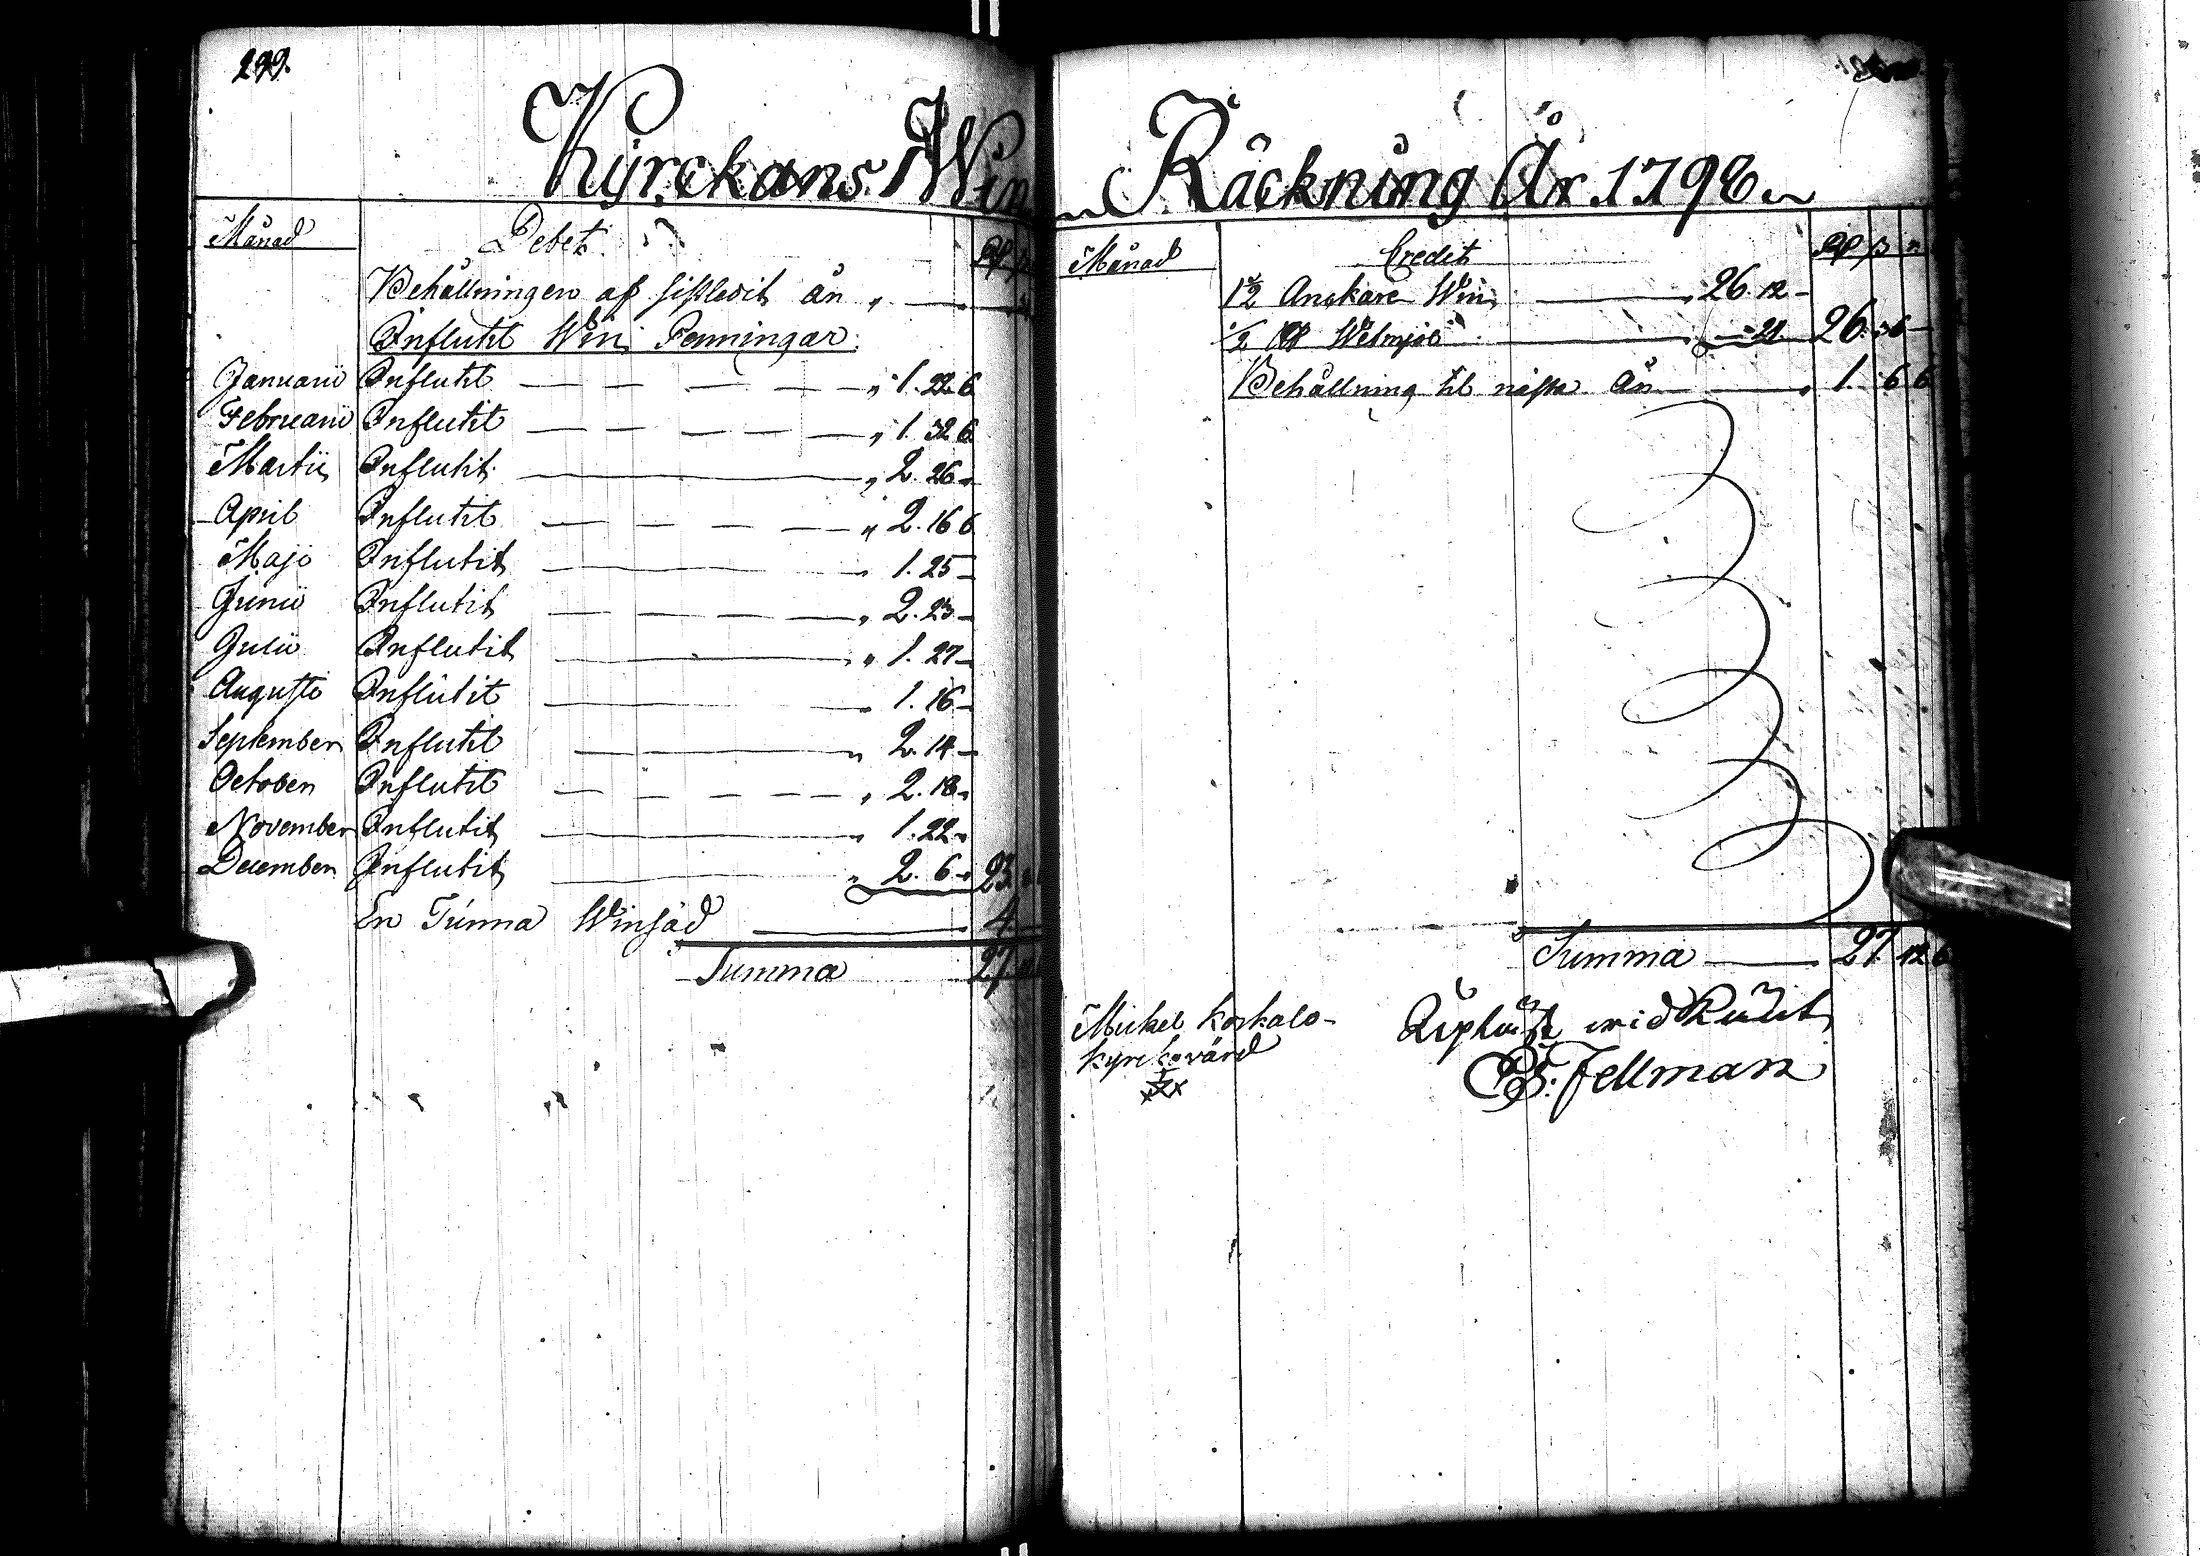 299.
Kyrckans Win
Månad Debet.
Behållningen af sistledit år
Influtit Win Penningar.
Januarii Influtit 1. 22 6
Februarii Influtit 1. 32 6
Martii Influtit 2. 26
April Influtit 2. 16 6
Maji Influtit 1. 25
Junii Influtit 2. 23
Julii Influtit 1. 27
Augusti Influtit 1. 16
September Influtit 2. 14
October Influtit 2. 18
November Influtit 1. 22
December Influtit 2. 6 23
En Tunna Winsäd 4.
Summa 27
Räckning År 1798
Månad Credit
1½ Anckare Win 26. 12
½ 21. 26. 36
Behållning til nästa År 1. 6 6
Summa 27. 12 6
Mickel Koskalo
Kyrckovärd
wid
Fellman